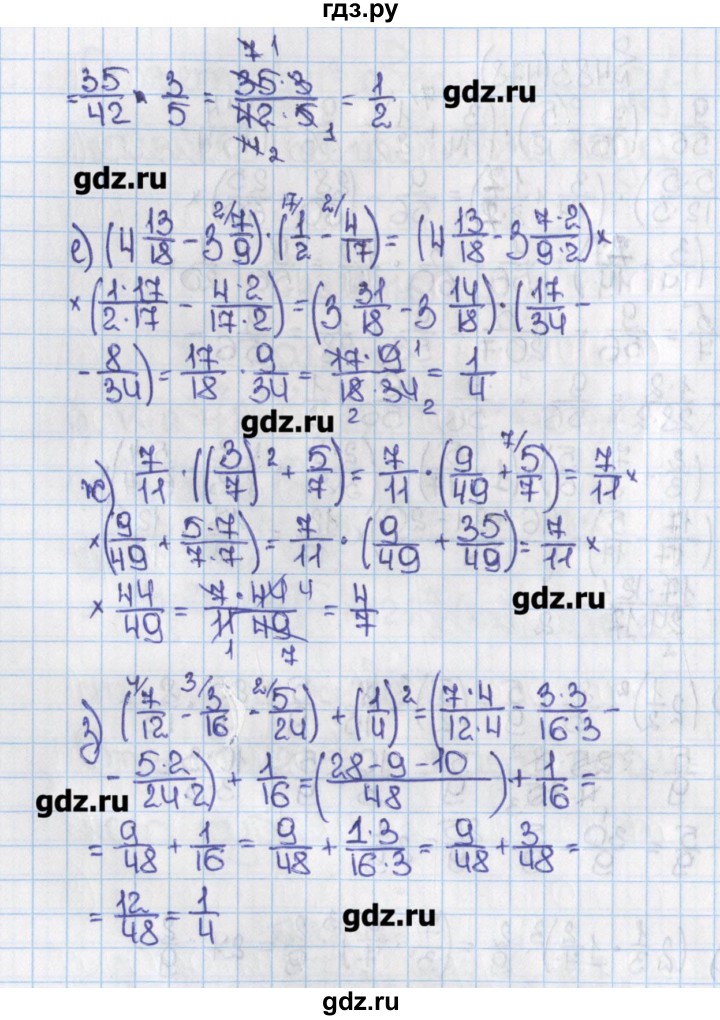 гдз.ру
7 1
= 35/42 · 3/5 = 35·3/42·5 = 1/2
gdz.ru
14 2 1
gdz.ru
е) (4 13/18 - 3 2/ 7/9) · (17/ 1/2 - 2/ 4/17) = (4 13/18 - 3 7·2/9·2) ×
× (1·17/2·17 - 4·2/17·2) = (3 31/18 - 3 14/18) · (17/34 -
- 8/34) = 17/18 · 9/34 = 17·9 1/18·34 = 1/4
gdz.ru 2 2
ж) 7/11 · ((3/7)² + 5/7) = 7/11 · (9/49 + 7/ 5/7) = 7/11 ×
× (9/49 + 5·7/7·7) = 7/11 · (9/49 + 35/49) = 7/11 ×
× 44/49 = 7·44 4/11·49 = 4/7
gdz.ru
1 7
з) (4/ 7/12 - 3/ 3/16 - 2/ 5/24) + (1/4)² = (7·4/12·4 - 3·3/16·3 -
- 5·2/24·2) + 1/16 = (28-9-10/48) + 1/16 =
gdz.ru
= 9/48 + 1/16 = 9/48 + 1·3/16·3 = 9/48 + 3/48 =
= 12/48 = 1/4
gdz.ru
gdz.ru